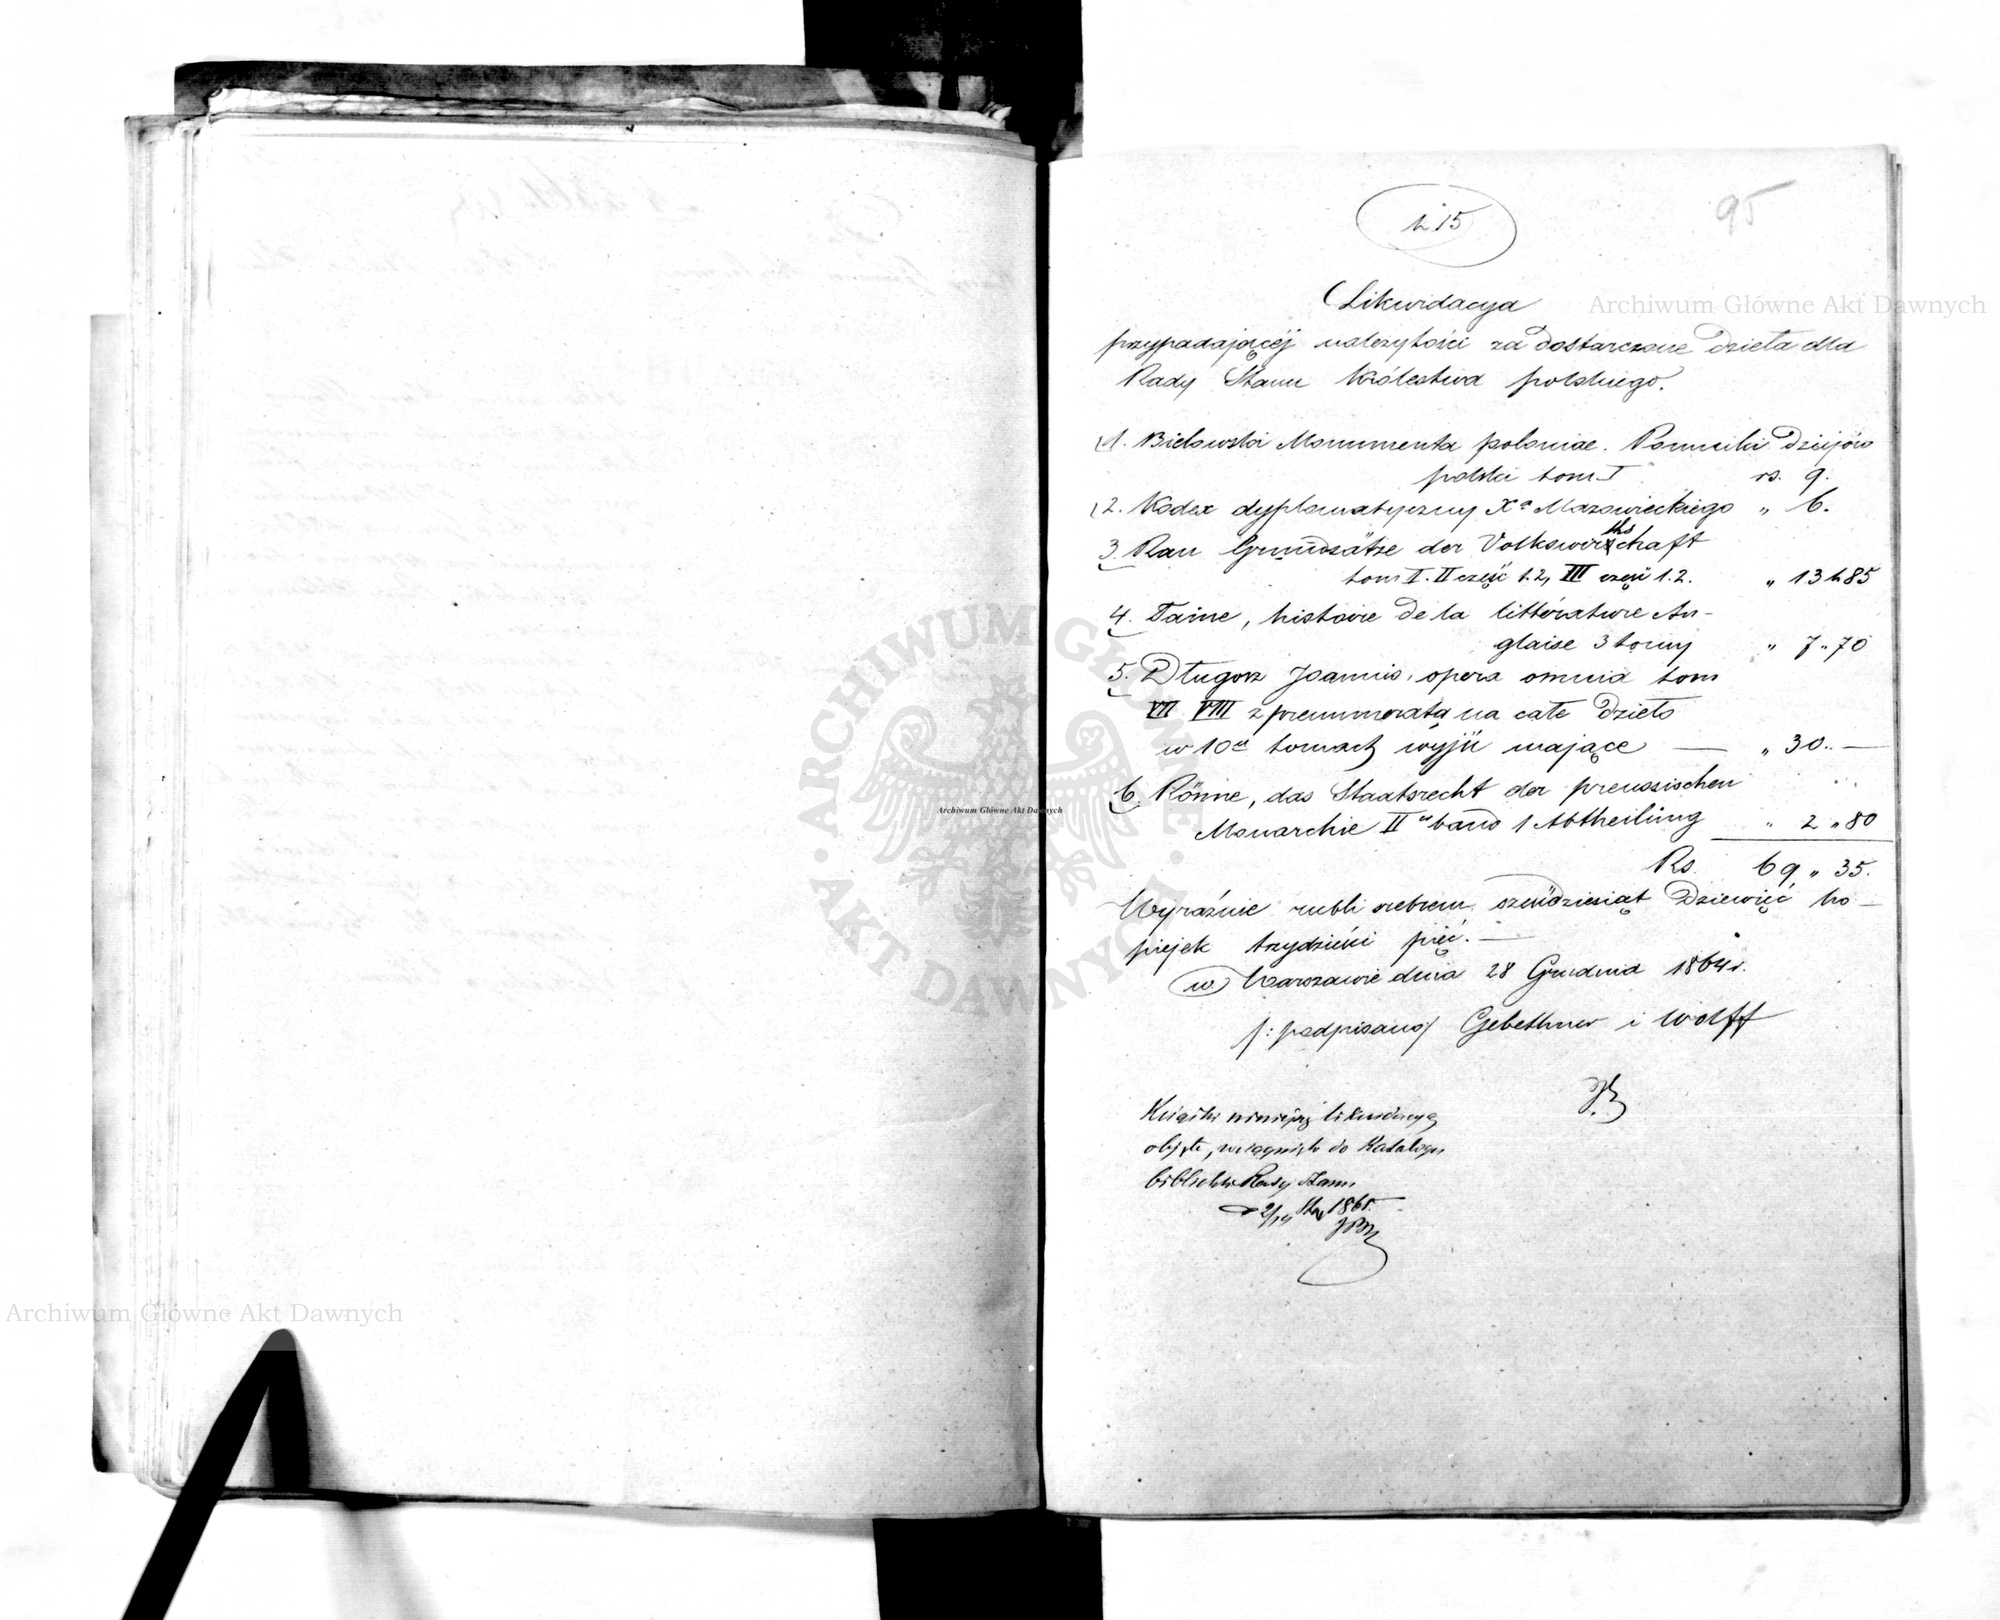 k 15
95
Likwidacya
przypadającéj należytości za dostarczone dzieła dla
Rady Stanu Królestwa polskiego.
1. Bielowski Monumenta poloniae. Pomniki Dziejów
polski tom I rs. 9.
2. Kodex dyplomatyczny Xa Mazowieckiego „ 6.
3. Rau Grundsätze der Volkswirthschaft
tom I. II część 1.2, III część 1.2. „ 13 k 85
4. Taine, histoire de la littérature An-
glaise 3 tomy „ 7 „ 70
5. Długosz Joannis, opera omnia tom
VII VIII z prenumeratą na całe Dzieło
w 10u tomach wyjść mające — „ 30 „ —
6. Rönne, das Staatsrecht der preussischen
Monarchie II band 1 Abtheilung „ 2 „ 80
Rs. 69 „ 35.
Wyraźnie rubli srebrem sześćdziesiąt Dziewięć ko-
piejek trzydzieści pięć. —
w Warszawie dnia 28 Grudnia 1864 r.
/: podpisano/ Gebethner i Wolff
Książki niniejszą likwidacyą
objęte, wciągnięte do Katalogu
biblioteki Rady Stanu
d 2/14 Stu 1865.
Archiwum Główne Akt Dawnych
Archiwum Główne Akt Dawnych
Archiwum Główne Akt Dawnych
ARCHIWUM GŁÓWNE AKT DAWNYCH